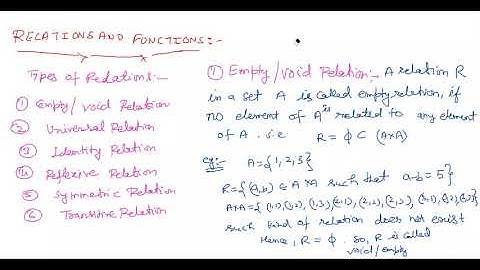 RELATIONS AND FUNCTIONS:-
Types of Relations:-
① Empty/void Relation
② Universal Relation
③ Identity Relation
④ Reflexive Relation
⑤ Symmetric Relation
⑥ Transitive Relation
① Empty/Void Relation:- A relation R
in a set A is called empty relation, if
no element of A is related to any element
of A. i.e R = ϕ ⊂ (A×A)
eg:- A = {1,2,3}
R = {(a,b) ∈ A×A such that a-b=5}
A×A = {(1,1), (1,2), (1,3), (2,1), (2,2), (2,3), (3,1), (3,2), (3,3)}
such kind of relation does not exist
Hence, R = ϕ. So, R is called
void/empty